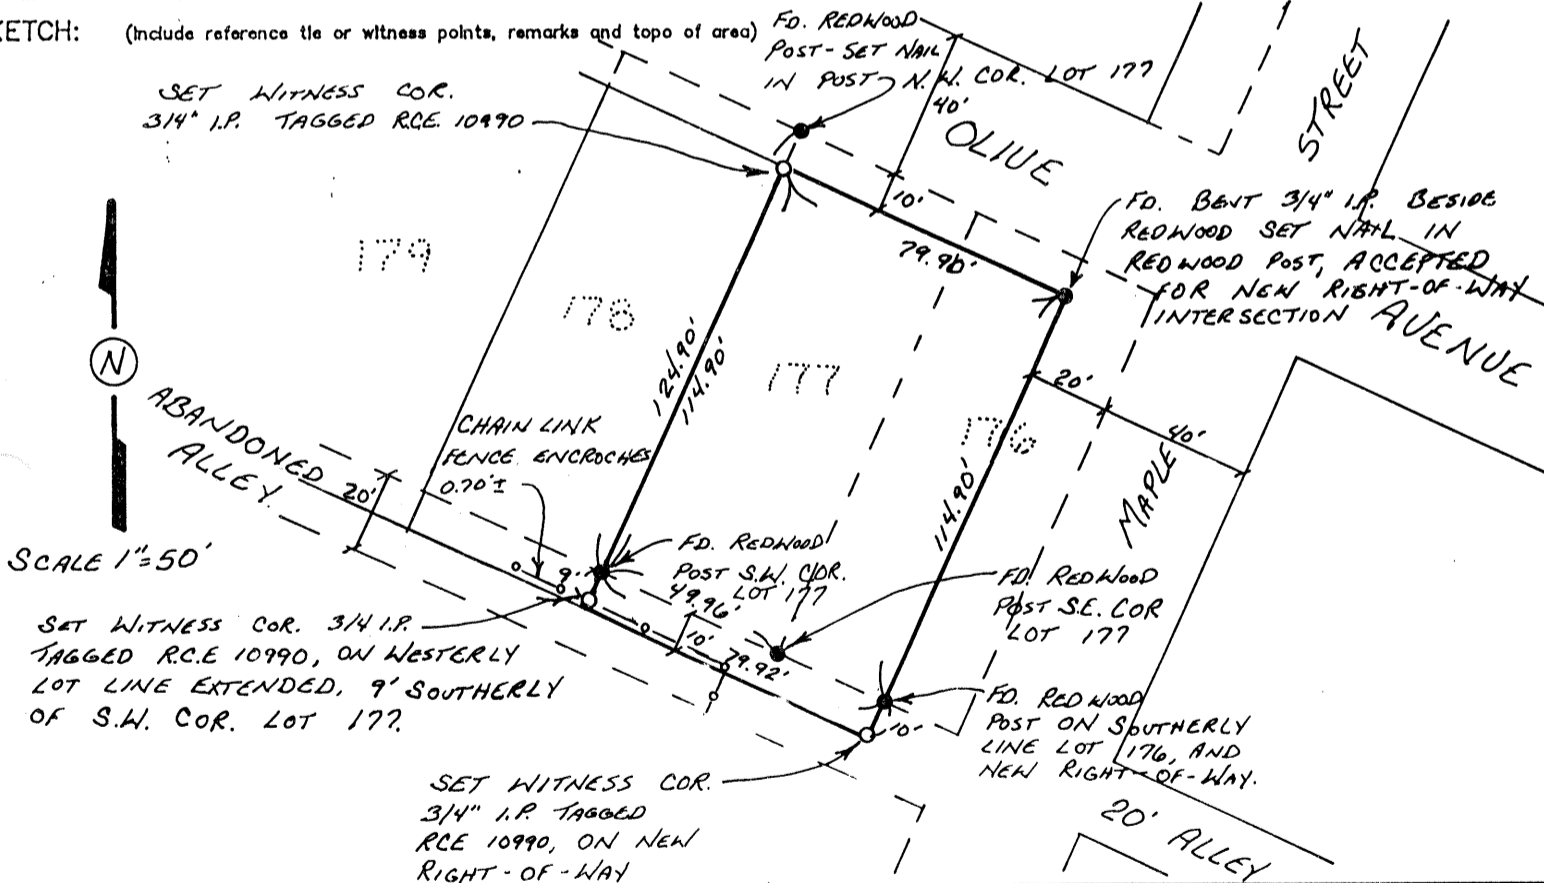 ETCH: (Include reference tie or witness points, remarks and topo of area)
FD. REDWOOD
POST-SET NAIL
IN POST N.W. COR. LOT 177
SET WITNESS COR.
3/4" I.P. TAGGED R.C.E. 10990
40'
OLIVE
STREET
10'
79.90'
FD. BENT 3/4" I.P. BESIDE
REDWOOD SET NAIL IN
REDWOOD POST, ACCEPTED
FOR NEW RIGHT-OF-WAY
INTERSECTION
AVENUE
179
178
177
176
N
124.90'
114.90'
114.90'
20'
40'
MAPLE
ABANDONED
ALLEY
20'
CHAIN LINK
FENCE ENCROCHES
0.70'±
SCALE 1"=50'
9'
FD. REDWOOD
POST S.W. COR.
LOT 177
49.96'
10'
79.92'
FD. REDWOOD
POST S.E. COR
LOT 177
SET WITNESS COR. 3/4 I.P.
TAGGED R.C.E 10990, ON WESTERLY
LOT LINE EXTENDED, 9' SOUTHERLY
OF S.W. COR. LOT 177.
10'
FD. REDWOOD
POST ON SOUTHERLY
LINE LOT 176, AND
NEW RIGHT-OF-WAY.
SET WITNESS COR.
3/4" I.P. TAGGED
RCE 10990, ON NEW
RIGHT-OF-WAY
20' ALLEY